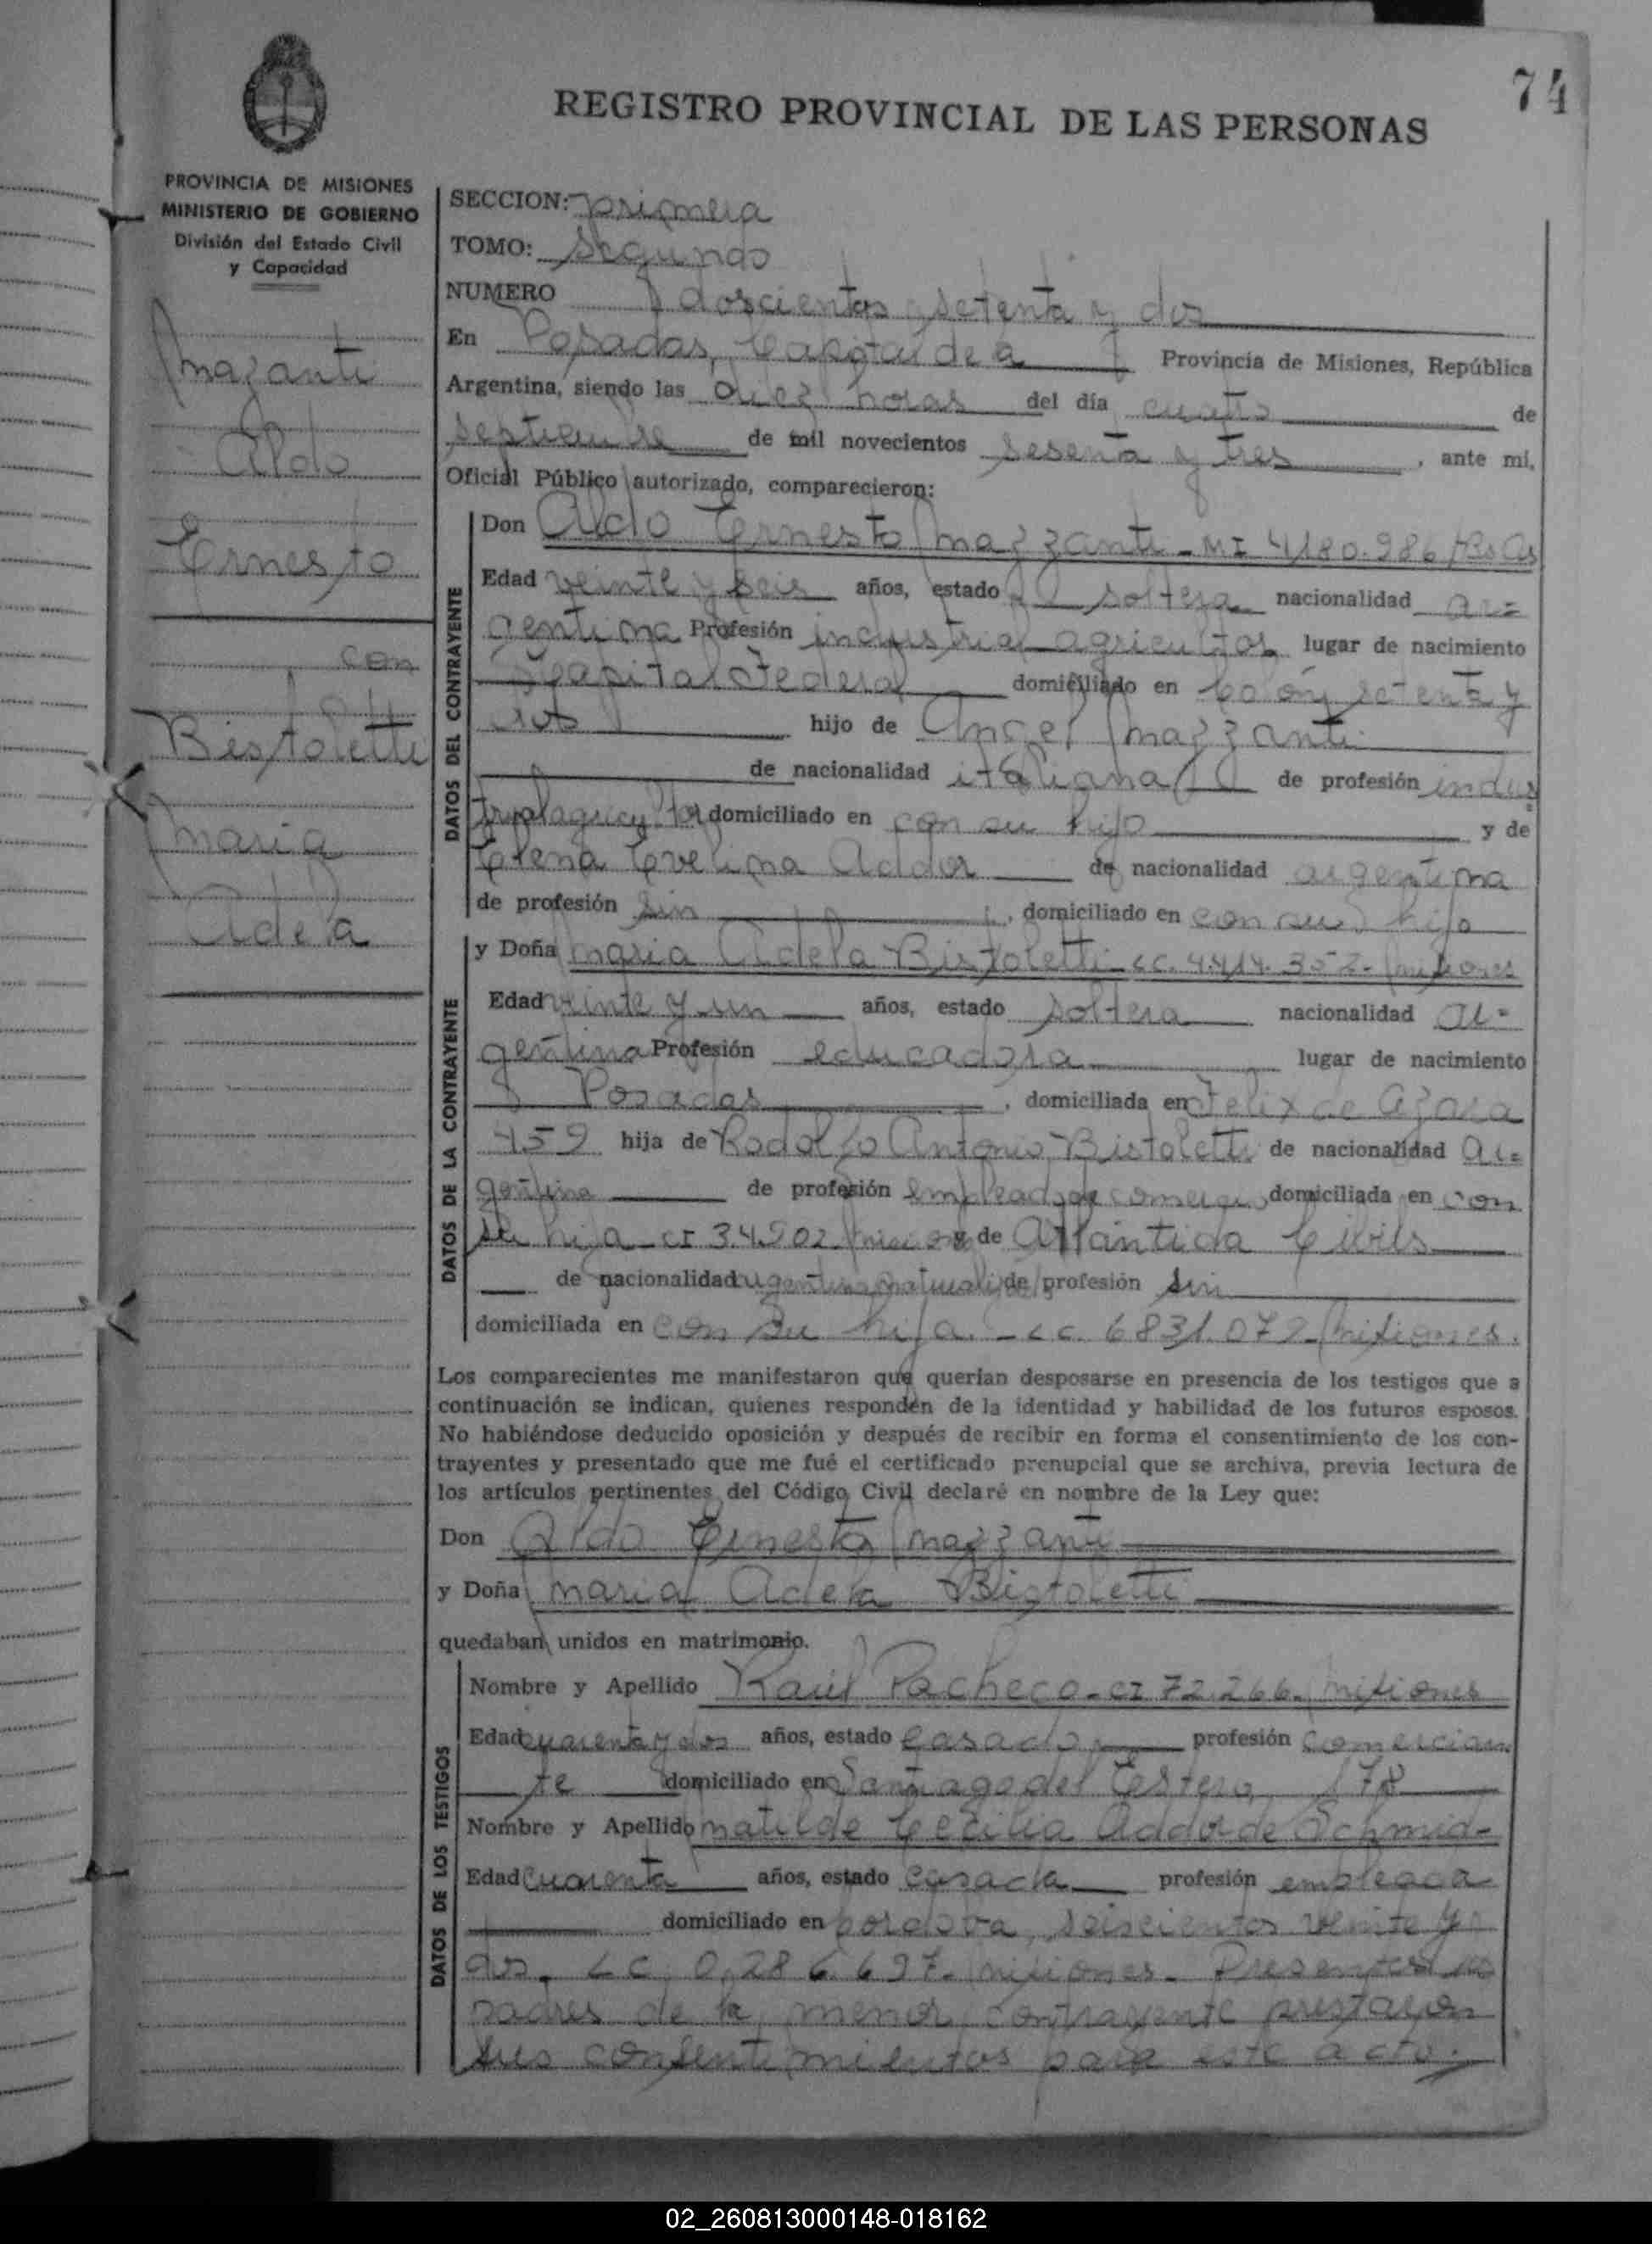 74
REGISTRO PROVINCIAL DE LAS PERSONAS
PROVINCIA DE MISIONES
MINISTERIO DE GOBIERNO
División del Estado Civil
y Capacidad
Mazanti
Aldo
Ernesto
con
Bistoletti
Maria
Adela
SECCION: primera
TOMO: Segundo
NUMERO doscientos setenta y dos
En Posadas, Capital de la Provincia de Misiones, República
Argentina, siendo las diez horas del día cuatro de
septiembre de mil novecientos sesenta y tres, ante mí,
Oficial Público autorizado, comparecieron:
DATOS DEL CONTRAYENTE
Don Aldo Ernesto Mazzanti - MI 4180.986 Bs As
Edad veinte y seis años, estado soltero nacionalidad ar=
gentina Profesión industrial agricultor lugar de nacimiento
Capital Federal domiciliado en Colón setenta y
dos hijo de Angel Mazzanti
de nacionalidad italiana de profesión indus
trial agricultor domiciliado en con su hijo y de
Elena Evelina Addor de nacionalidad argentina
de profesión sin, domiciliado en con su hijo
DATOS DE LA CONTRAYENTE
y Doña Maria Adela Bistoletti - LC. 4.414.352 - Misiones
Edad veinte y un años, estado soltera nacionalidad ar=
gentina Profesión educadora lugar de nacimiento
Posadas, domiciliada en Felix de Azara
459 hija de Rodolfo Antonio Bistoletti de nacionalidad ar=
gentina de profesión empleado de comercio domiciliada en con
su hija - CI 34.902 Misiones y de Atlántida Cibils
de nacionalidad argentina de profesión sin
domiciliada en con su hija. - LC. 6831.079 - Misiones.
Los comparecientes me manifestaron que querían desposarse en presencia de los testigos que a
continuación se indican, quienes responden de la identidad y habilidad de los futuros esposos.
No habiéndose deducido oposición y después de recibir en forma el consentimiento de los con-
trayentes y presentado que me fué el certificado prenupcial que se archiva, previa lectura de
los artículos pertinentes del Código Civil declaré en nombre de la Ley que:
Don Aldo Ernesto Mazzanti
y Doña Maria Adela Bistoletti
quedaban unidos en matrimonio.
DATOS DE LOS TESTIGOS
Nombre y Apellido Raúl Pacheco - CI 72.266 - Misiones
Edad cuarenta y dos años, estado casado profesión comercian
te domiciliado en Santiago del Estero 178
Nombre y Apellido Matilde Cecilia Addor de Schmid -
Edad cuarenta años, estado casada profesión empleada
domiciliado en Cordova, seiscientos veinte y
dos. LC 0.286.697 - Misiones. Presentes los
padres de la menor contrayente prestaron
sus consentimientos para este acto.
02_260813000148-018162